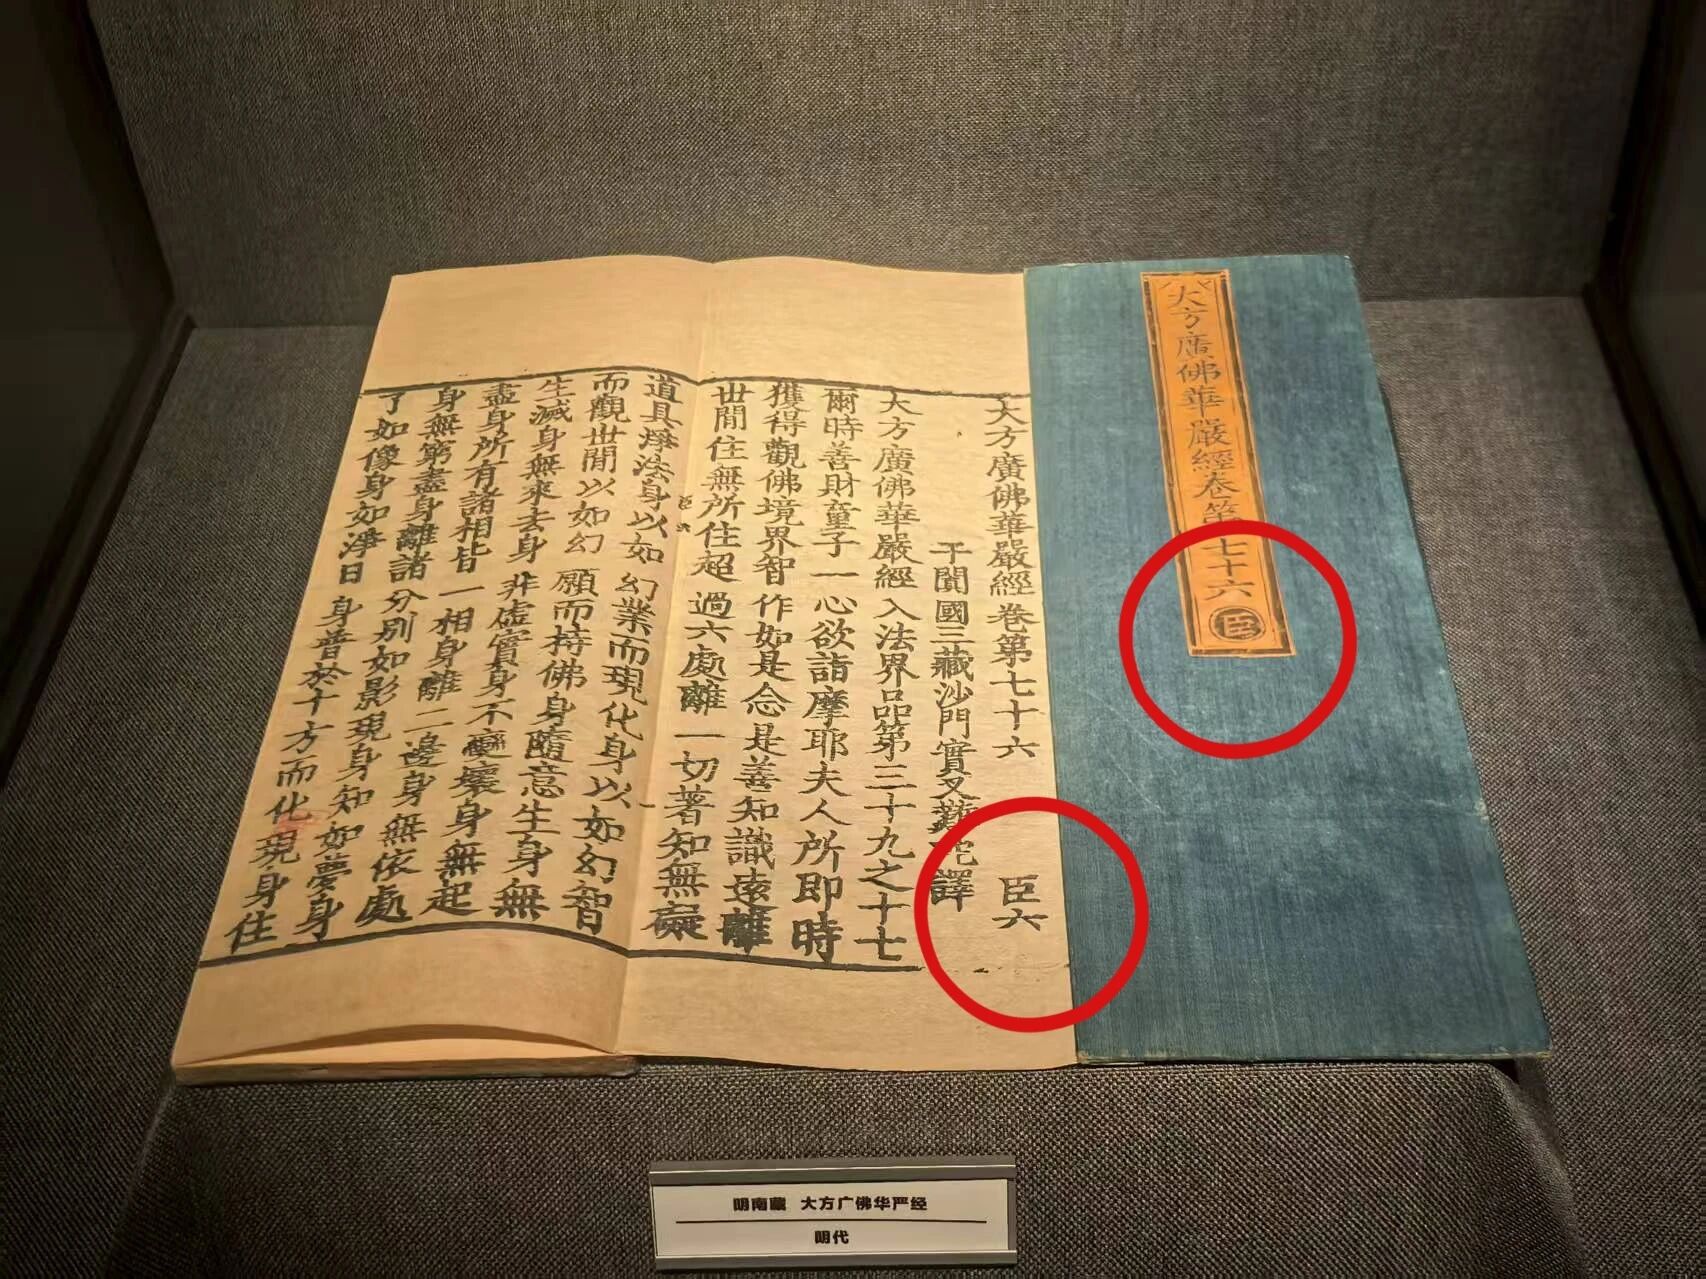 大方廣佛華嚴經卷第七十六 臣
大方廣佛華嚴經卷第七十六 臣六
于闐國三藏沙門實叉難陀譯
大方廣佛華嚴經入法界品第三十九之十七
爾時善財童子一心欲詣摩耶夫人所即時
獲得觀佛境界智作如是念是善知識遠離
世間住無所住超過六處離一切著知無礙
臣六
道具淨法身以如幻業而現化身以如幻智
而觀世間以如幻願而持佛身隨意生身無
生滅身無來去身非虛實身不變壞身無起
盡身所有諸相皆一相身離二邊身無依處
身無窮盡身離諸分別如影現身知如夢身
了如像身如淨日身普於十方而化現身住
明南藏 大方广佛华严经
明代